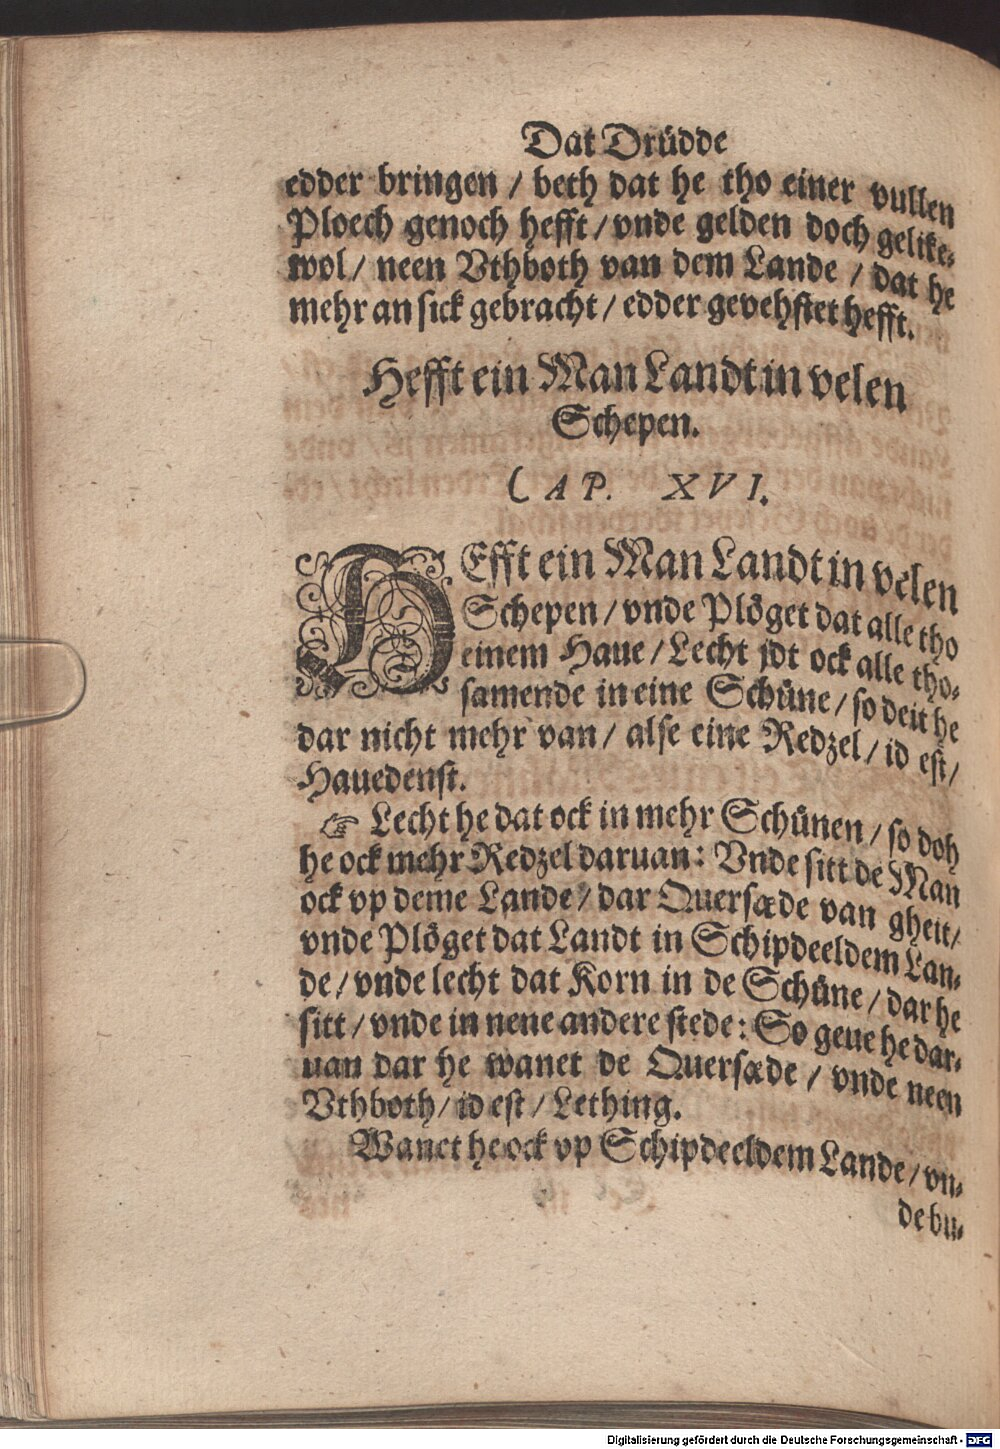 Dat Drüdde
edder bringen / beth dat he tho einer vullen
Ploech genoch hefft / vnde gelden doch gelike-
wol / neen Vthboth van dem Lande / dat he
mehr an sick gebracht / edder gevehstet hefft.
Hefft ein Man Landt in velen
Schepen.
CAP. XVI.
HEfft ein Man Landt in velen
Schepen / vnde Plöget dat alle tho
einem Haue / Lecht jdt ock alle tho-
samende in eine Schüne / so deit he
dar nicht mehr van / alse eine Redzel / id est /
Hauedenst.
☞ Lecht he dat ock in mehr Schünen / so doh
he ock mehr Redzel daruan: Vnde sitt de Man
ock vp deme Lande / dar Quersæde van gheit /
vnde Plöget dat Landt in Schipdeeldem Lan-
de / vnde lecht dat Korn in de Schüne / dar he
sitt / vnde in nene andere stede: So geue he dar-
uan dar he wanet de Quersæde / vnde neen
Vthboth / id est / Lething.
Wanet he ock vp Schipdeeldem Lande / vn-
de bu-
Digitalisierung gefördert durch die Deutsche Forschungsgemeinschaft - DFG